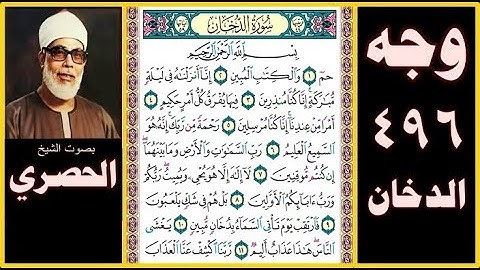 وجه
٤٩٦
الدخان
بصوت الشيخ
الحصري
سُورَةُ الدُّخَانِ
بِسْمِ اللَّهِ الرَّحْمَٰنِ الرَّحِيمِ
حمٓ ١ وَالْكِتَابِ الْمُبِينِ ٢ إِنَّا أَنزَلْنَاهُ فِي لَيْلَةٍ
مُّبَارَكَةٍ إِنَّا كُنَّا مُنذِرِينَ ٣ فِيهَا يُفْرَقُ كُلُّ أَمْرٍ حَكِيمٍ ٤
أَمْرًا مِّنْ عِندِنَا إِنَّا كُنَّا مُرْسِلِينَ ٥ رَحْمَةً مِّن رَّبِّكَ إِنَّهُ هُوَ
السَّمِيعُ الْعَلِيمُ ٦ رَبِّ السَّمَاوَاتِ وَالْأَرْضِ وَمَا بَيْنَهُمَا
إِن كُنتُم مُّوقِنِينَ ٧ لَا إِلَٰهَ إِلَّا هُوَ يُحْيِي وَيُمِيتُ رَبُّكُمْ
وَرَبُّ آبَائِكُمُ الْأَوَّلِينَ ٨ بَلْ هُمْ فِي شَكٍّ يَلْعَبُونَ
٩ فَارْتَقِبْ يَوْمَ تَأْتِي السَّمَاءُ بِدُخَانٍ مُّبِينٍ ١٠ يَغْشَى
النَّاسَ هَٰذَا عَذَابٌ أَلِيمٌ ١١ رَّبَّنَا اكْشِفْ عَنَّا الْعَذَابَ